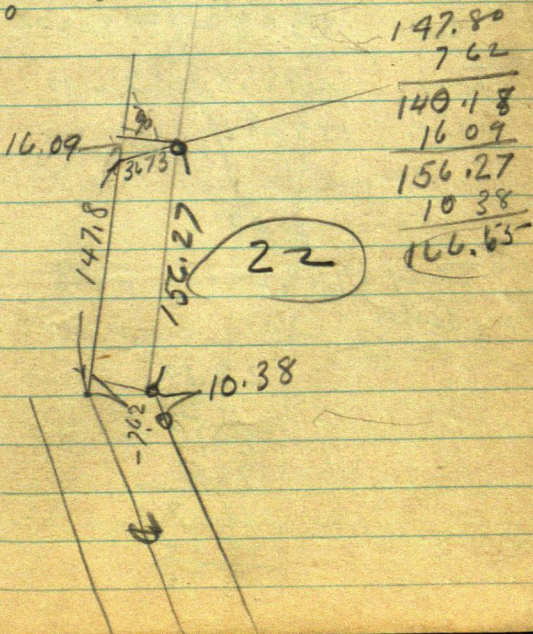 0
147.80
7 62
140.18
16 09
156.27
10 38
166.65
90
16.09
3673
147.8
156.27
22
10.38
-7.62